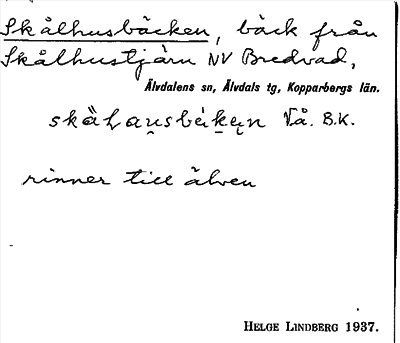 Skålhusbäcken, bäck från
Skålhustjärn NV Bredvad,
Älvdalens sn, Älvdals tg, Kopparbergs län.
Vå. B.K.
rinner till älven
HELGE LINDBERG 1937.